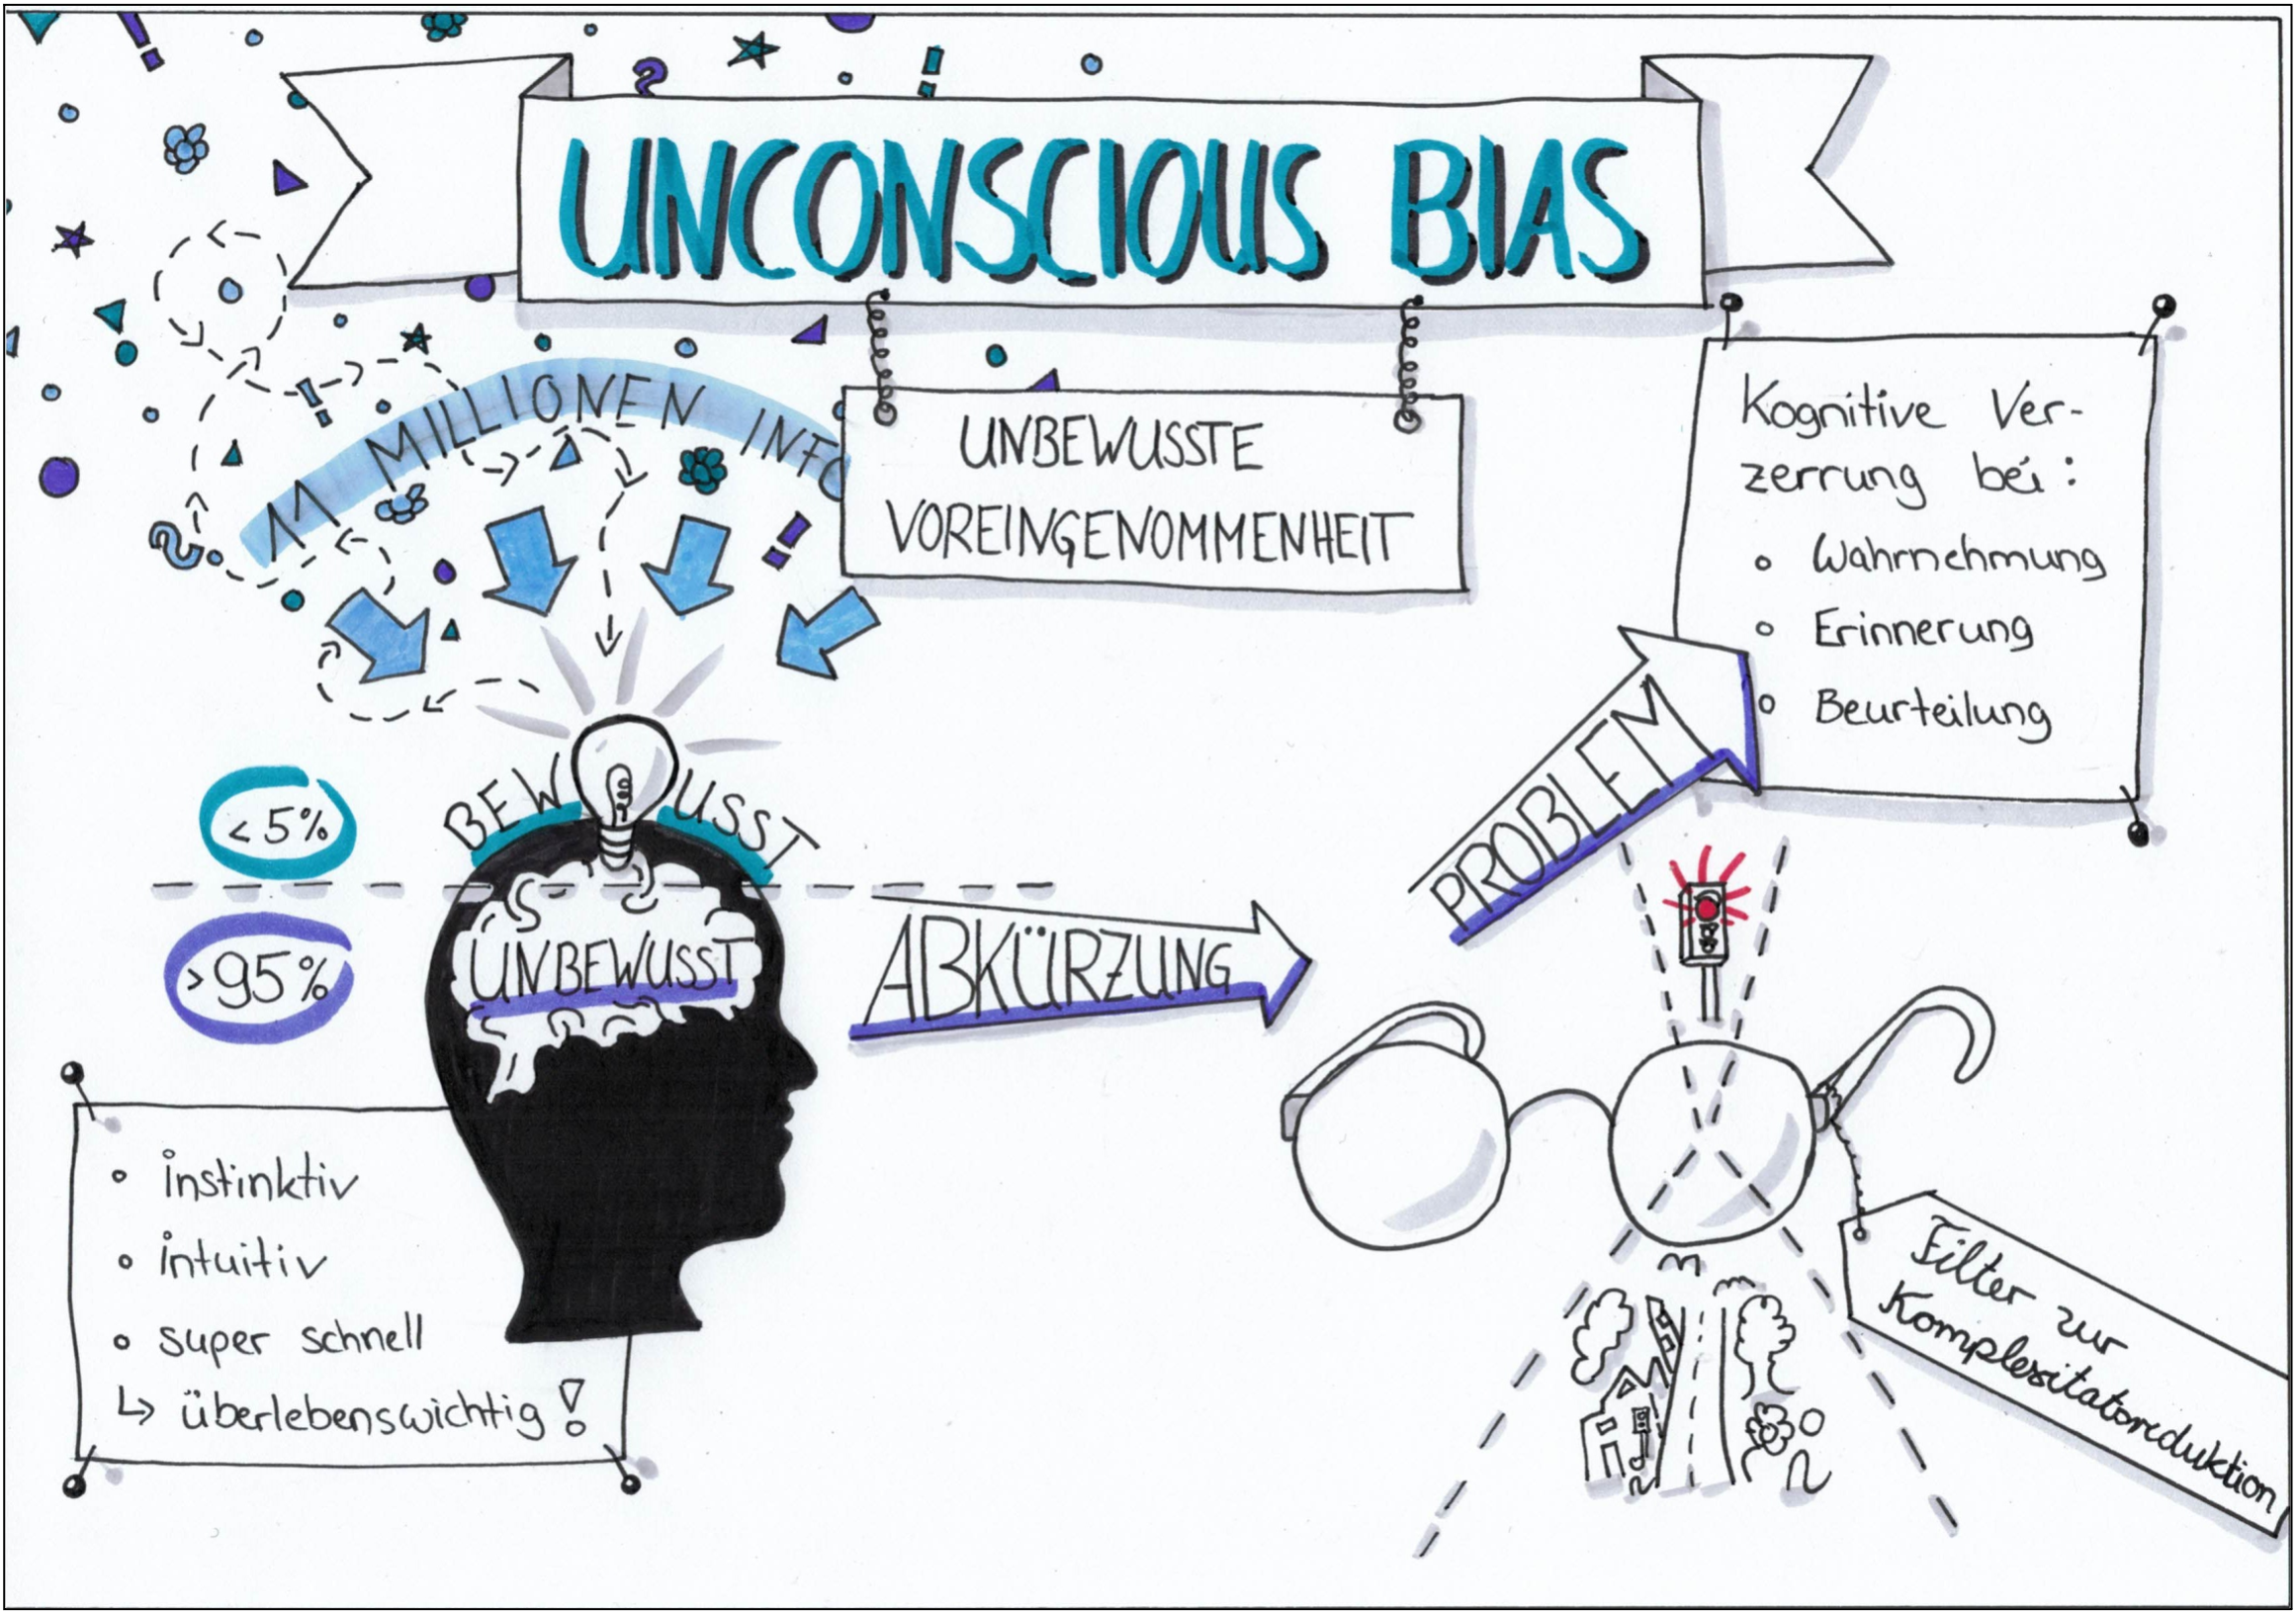 UNCONSCIOUS BIAS
UNBEWUSSTE
VOREINGENOMMENHEIT
11 MILLIONEN INFO
BEWUSST
< 5%
UNBEWUSST
> 95%
• instinktiv
• intuitiv
• super schnell
↳ überlebenswichtig!
ABKÜRZUNG
PROBLEM
Kognitive Ver-
zerrung bei:
• Wahrnehmung
• Erinnerung
• Beurteilung
Filter zur
Komplexitätsreduktion